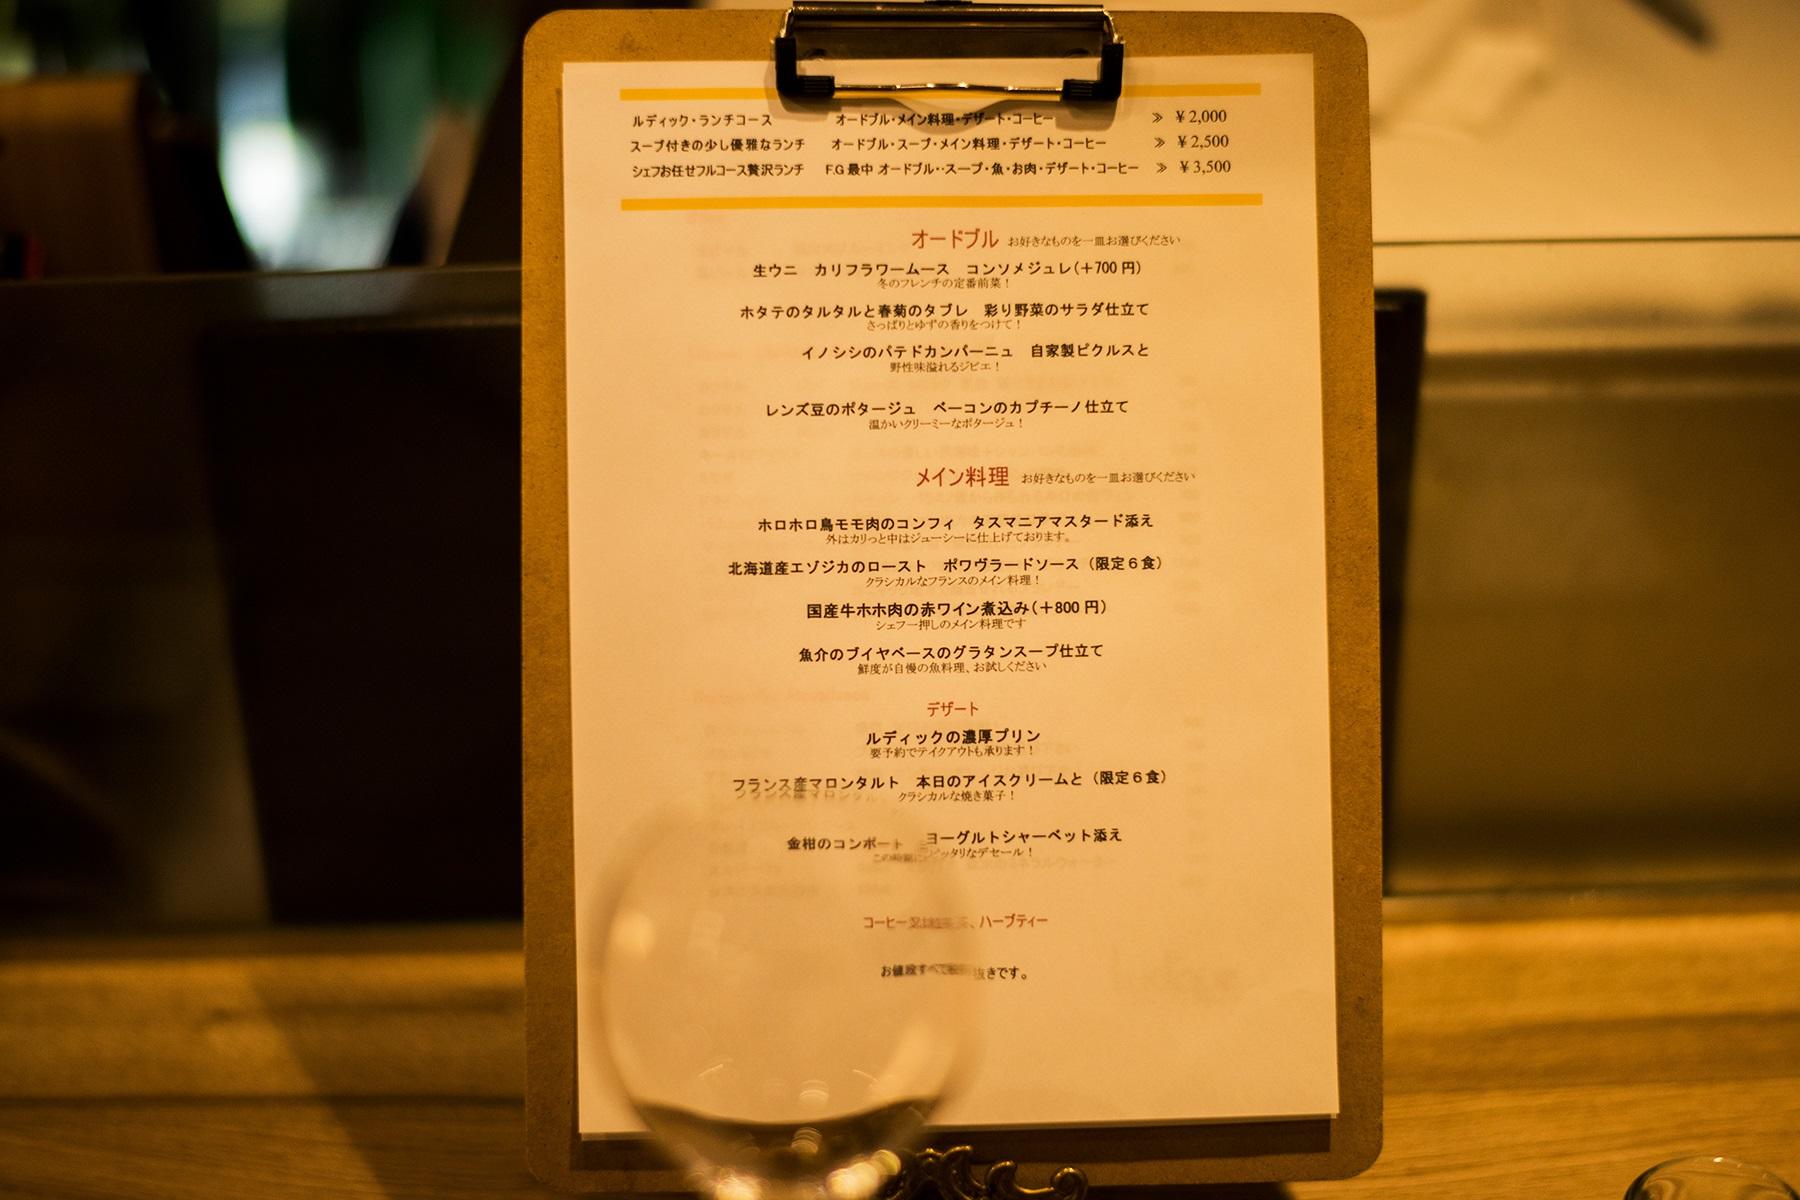 ルディック・ランチコース オードブル・メイン料理・デザート・コーヒー ≫ ￥2,000
スープ付きの少し優雅なランチ オードブル・スープ・メイン料理・デザート・コーヒー ≫ ￥2,500
シェフお任せフルコース贅沢ランチ F.G最中 オードブル・・スープ・魚・お肉・デザート・コーヒー ≫ ￥3,500
オードブル お好きなものを一皿お選びください
生ウニ カリフラワームース コンソメジュレ（＋700円）
冬のフレンチの定番前菜！
ホタテのタルタルと春菊のタブレ 彩り野菜のサラダ仕立て
さっぱりとゆずの香りをつけて！
イノシシのパテドカンパーニュ 自家製ピクルスと
野性味溢れるジビエ！
レンズ豆のポタージュ ベーコンのカプチーノ仕立て
温かいクリーミーなポタージュ！
メイン料理 お好きなものを一皿お選びください
ホロホロ鳥モモ肉のコンフィ タスマニアマスタード添え
外はカリっと中はジューシーに仕上げております。
北海道産エゾジカのロースト ポワヴラードソース（限定６食）
クラシカルなフランスのメイン料理！
国産牛ホホ肉の赤ワイン煮込み（＋800円）
シェフ一押しのメイン料理です
魚介のブイヤベースのグラタンスープ仕立て
鮮度が自慢の魚料理、お試しください
デザート
ルディックの濃厚プリン
要予約でテイクアウトも承ります！
フランス産マロンタルト 本日のアイスクリームと（限定６食）
クラシカルな焼き菓子！
金柑のコンポート ヨーグルトシャーベット添え
ピッタリなデセール！
コーヒー 、ハーブティー
お値段すべて 抜きです。